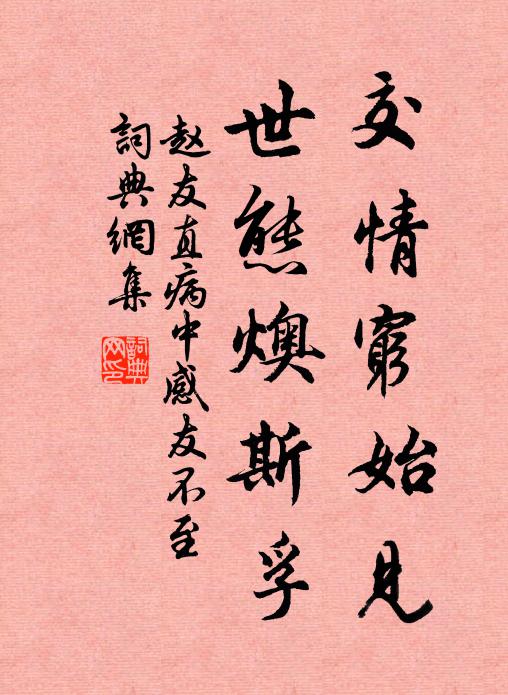 交情窮始見
世態燠斯孚
赵友直病中感友不至
詞典網集
詞典网印